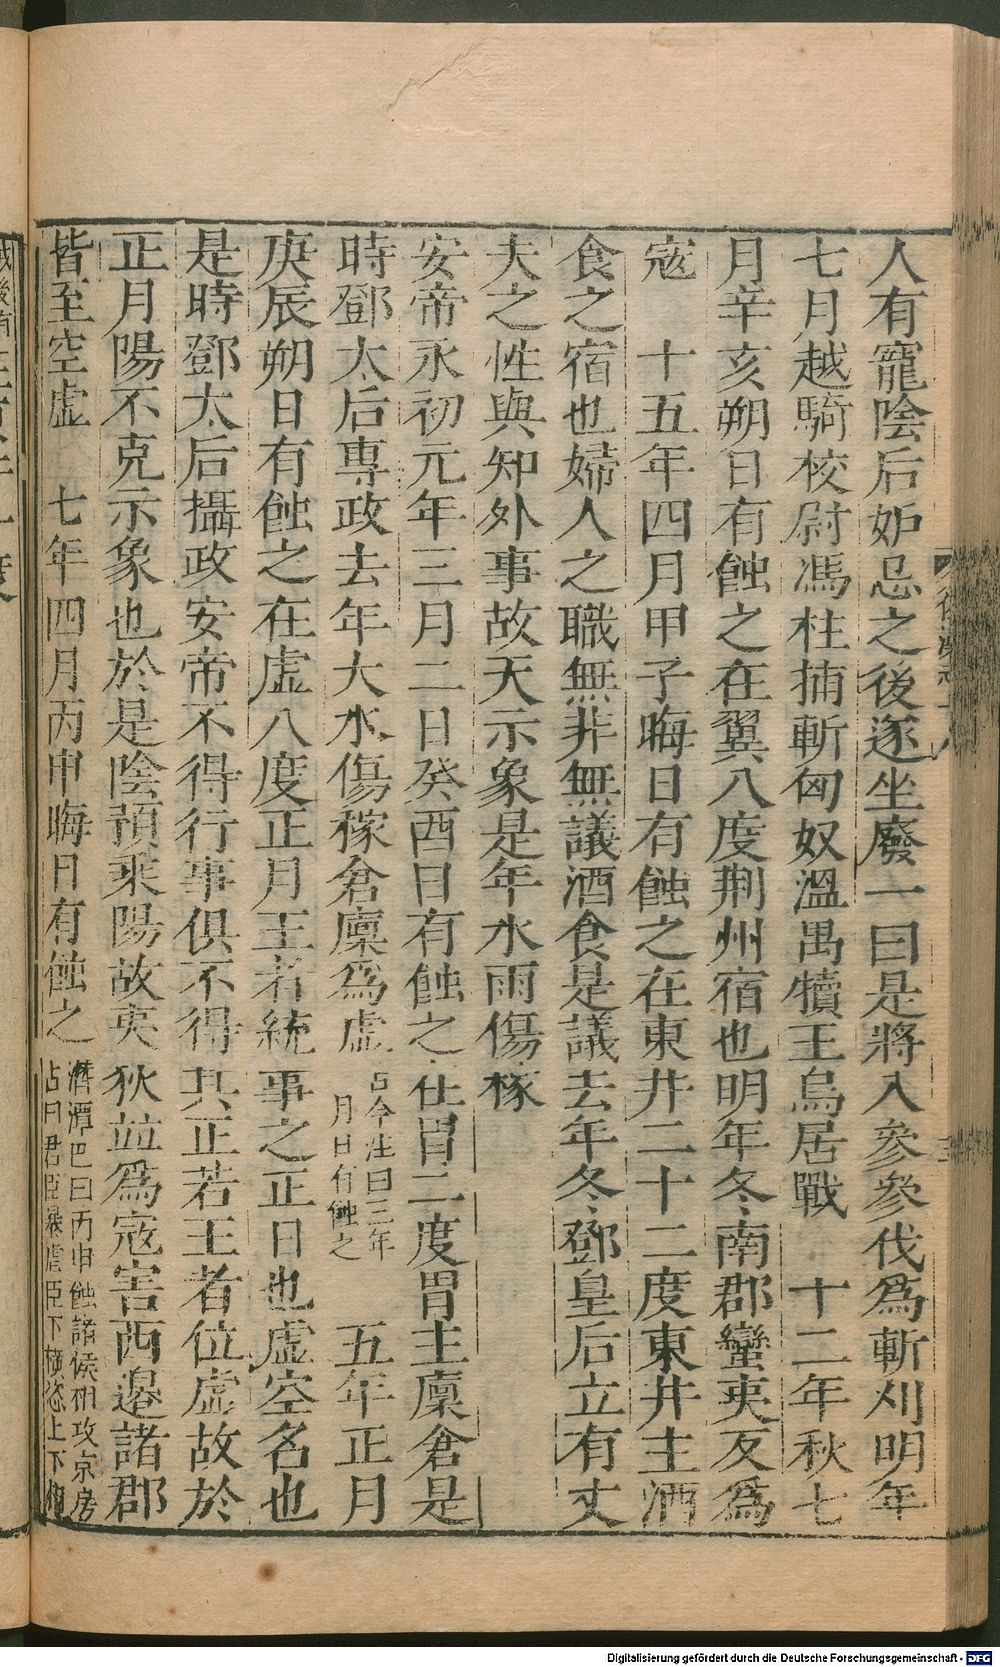 人有寵陰后妒忌之後遂坐廢一曰是將入參參伐為斬刈明年
七月越騎校尉馮柱捕斬匈奴溫禺犢王烏居戰　十二年秋七
月辛亥朔日有蝕之在翼八度荆州宿也明年冬南郡蠻夷反為
寇　十五年四月甲子晦日有蝕之在東井二十二度東井主酒
食之宿也婦人之職無非無議酒食是議去年冬鄧皇后立有丈
夫之性與知外事故天示象是年水雨傷稼
安帝永初元年三月二日癸酉日有蝕之在胃二度胃主廩倉是
時鄧太后專政去年大水傷稼倉廩為虛
古今注曰三年
月日有蝕之
五年正月
庚辰朔日有蝕之在虛八度正月王者統事之正日也虛空名也
是時鄧太后攝政安帝不得行事俱不得其正若王者位虛故於
正月陽不克示象也於是陰預乘陽故夷狄並為寇害西邉諸郡
皆至空虛　七年四月丙申晦日有蝕之
濳潭巴曰丙申蝕諸侯相攻京房
占曰君臣暴虐臣下橫恣上下相
Digitalisierung gefördert durch die Deutsche Forschungsgemeinschaft - DFG